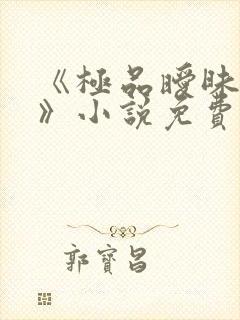 《極品曖昧
》小說免費
郭寶昌